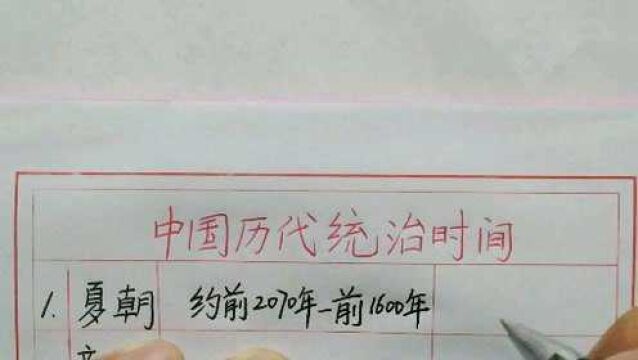 中国历代统治时间
1. 夏朝 约前2070年-前1600年